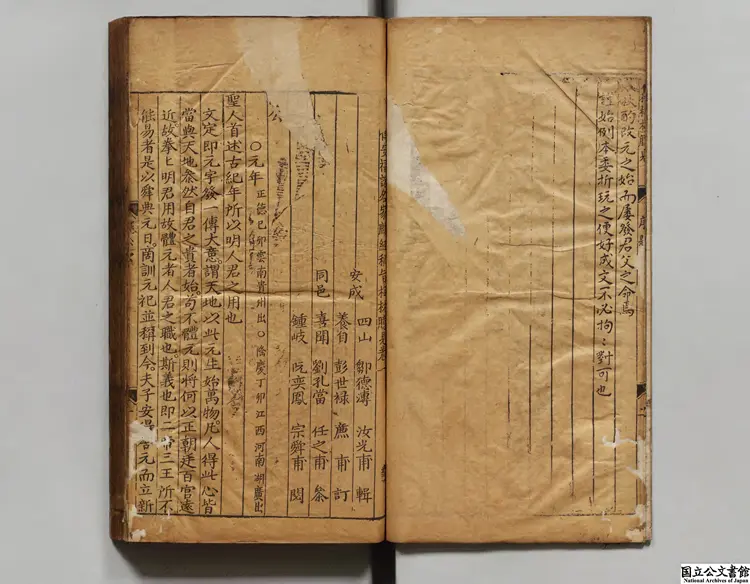 欽酌改元之始而屢發君父之命焉
經始則本委折玩之便好成文不必拘〻對可也
安成 四山 鄒德溥 汝光甫 輯
養白 彭世祿 廌甫 訂
同邑 喜聞 劉孔當 任之甫 叅
鍾岐 阮奕鳳 宗舜甫 閱
公
〇元年 正德己卯雲南貴州出〇隆慶丁卯江西河南湖廣出
聖人首述古紀年所以明人君之用也
文定即元字發一傳大意謂天地以此元生始萬物凡人得此心皆
當與天地叅然自君之貴者始苟不體元則將何以正朝廷百官遠
近故拳〻明君用故體元者人君之職也斯義也即二帝三王所不
能易者是以舜典元日商訓元祀並稱到今夫子安得舍元而立新
国立公文書館
National Archives of Japan